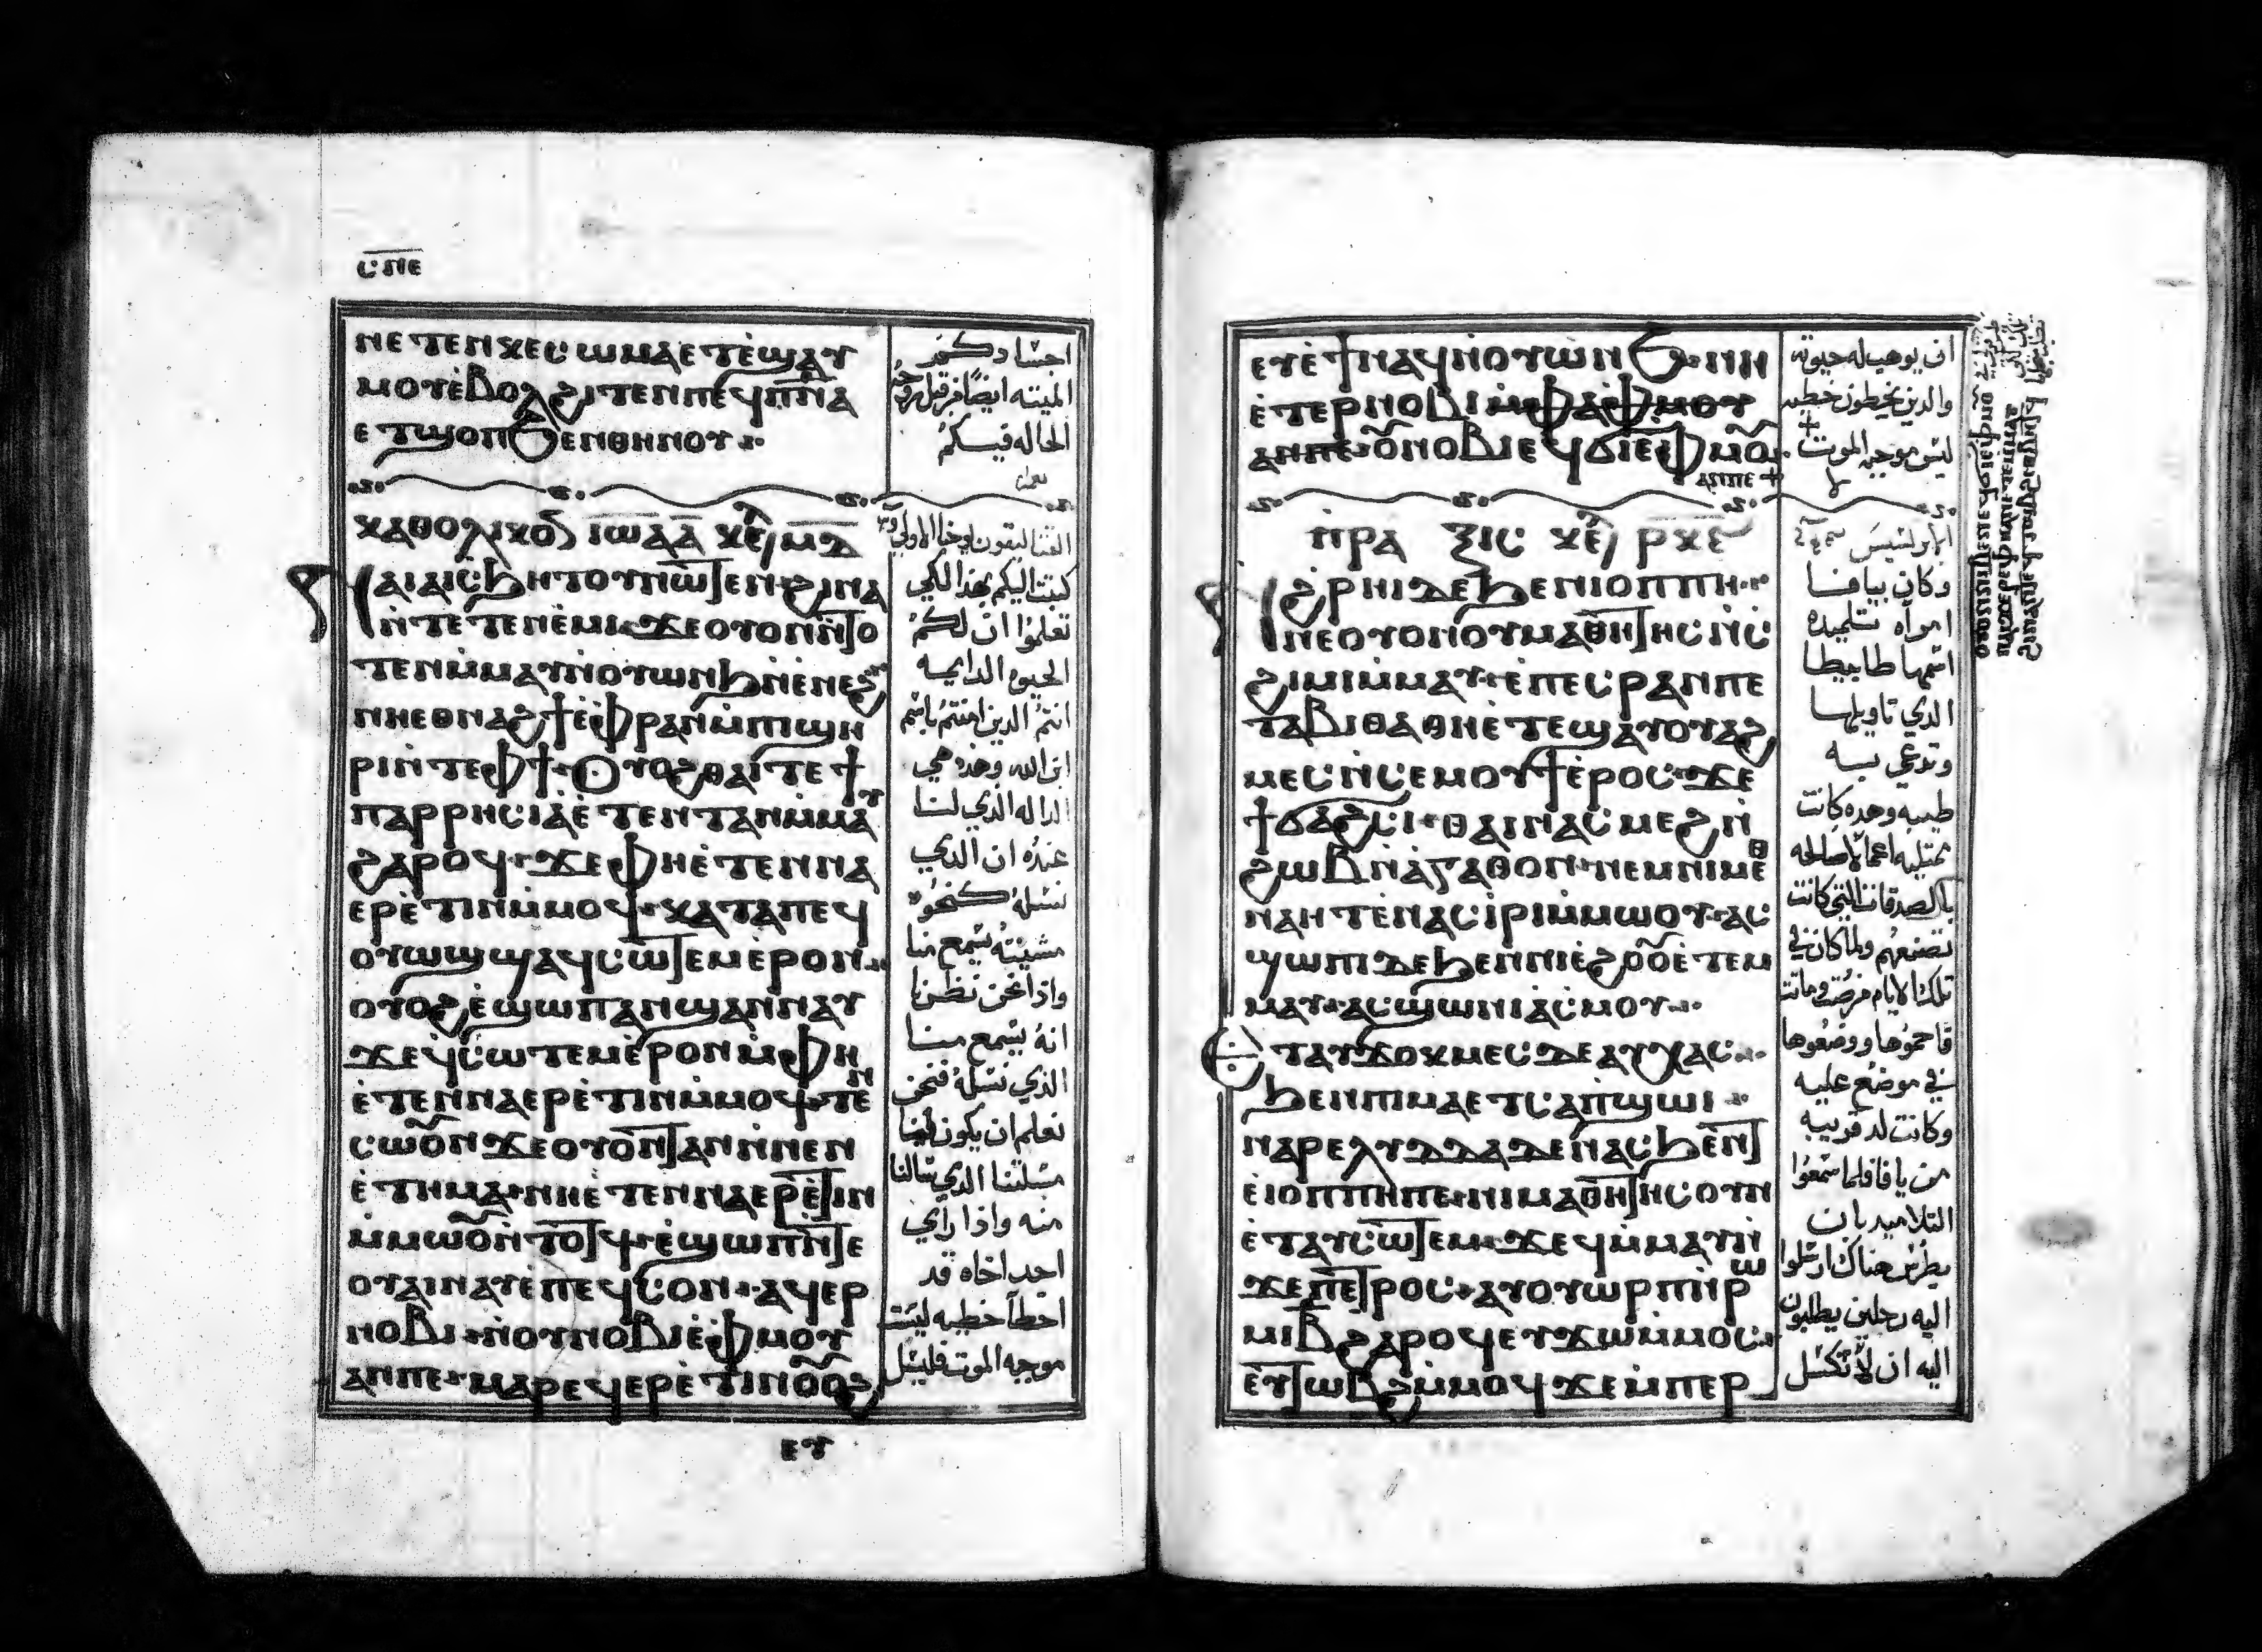 ⲥⲡⲉ
ⲛⲉⲧⲉⲛⲕⲉⲥⲱⲙⲁⲉⲧⲉ̀ϣⲁⲩ
ⲙⲟⲩⲉ̀ⲃⲟⲗϩⲓⲧⲉⲛⲡⲉϥⲡ̅ⲛ̅ⲁ
ⲉⲧϣⲟⲡϧⲉⲛⲑⲏⲛⲟⲩ
ⲕⲁⲑⲟⲗⲓⲕⲟⲛ ⲓⲱⲁ ⲁ̅ ⲕⲉ ⲙⲇ
ⲛⲁⲓⲁⲓⲥϧⲏⲧⲟⲩⲛⲱⲧⲉⲛϩⲓⲛⲁ
ⲛ̀ⲧⲉⲧⲉⲛⲉ̀ⲙⲓϫⲉⲟⲩⲟⲛⲛ̀ⲧⲟ
ⲧⲉⲛⲙ̀ⲙⲁⲩⲛ̀ⲟⲩⲱⲛϧⲛ̀ⲉ̀ⲛⲉϩ
ⲛⲏⲉⲑⲛⲁϩϯⲉ̀ⲫⲣⲁⲛⲙ̀ⲡϣⲏ
ⲣⲓⲛ̀ⲧⲉⲫϯ ⲟⲩⲟϩⲑⲁⲓⲧⲉϯ
ⲡⲁⲣⲣⲏⲥⲓⲁⲉ̀ⲧⲉⲛⲧⲁⲛⲙ̀ⲙⲁⲩ
ϩⲁⲣⲟϥ ϫⲉⲫⲏⲉ̀ⲧⲉⲛⲛⲁ
ⲉⲣⲉ̀ⲧⲓⲛⲙ̀ⲙⲟϥ ⲕⲁⲧⲁⲡⲉϥ
ⲟⲩⲱϣϣⲁϥⲥⲱⲧⲉⲙⲉ̀ⲣⲟⲛ
ⲟⲩⲟϩⲉ̀ϣⲱⲡⲁⲛϣⲁⲛⲛⲁⲩ
ϫⲉϥⲥⲱⲧⲉⲙⲉ̀ⲣⲟⲛⲙ̀ⲫⲏ
ⲉ̀ⲧⲉⲛⲛⲁⲉⲣⲉ̀ⲧⲓⲛⲙ̀ⲙⲟϥ ⲧⲉⲛ
ⲥⲱⲟⲩⲛϫⲉⲟⲩⲟⲛⲧⲁⲛⲛ̀ⲛⲉⲛ
ⲉ̀ⲧⲏⲙⲁ ⲛⲏⲉ̀ⲧⲉⲛⲛⲁⲉⲣⲉ̀ⲧⲓⲛ
ⲙ̀ⲙⲱⲟⲩⲛ̀ⲧⲟⲧϥ ⲉ̀ϣⲱⲡⲛ̀ⲧⲉ
ⲟⲩⲁⲓⲛⲁⲩⲉ̀ⲡⲉϥⲥⲟⲛ ⲁϥⲉⲣ
ⲛⲟⲃⲓ ⲛ̀ⲟⲩⲛⲟⲃⲓⲉ̀ⲫⲙⲟⲩ
ⲁⲛⲡⲉ ⲙⲁⲣⲉϥⲉⲣⲉ̀ⲧⲓⲛⲟⲩⲟϩ
ⲉⲩ
اجسادكم
الميته ايضا من قبل روحه
الحاله فيكم
كتبت اليكم بهذا لكي
تعلموا ان لكم
الحيوه الدايمه
انتم الدين امنتم باسم
ابن الله وهذه هي
الداله الذي لنا
عنده ان الذي
نسله كنحو
مشيته يسمع منا
واذا نحن نظرنا
انه يسمع منا
الذي نسله فنحن
نعلم ان يكون لنا
مسلتنا الذي سالنا
منه واذا راي
احد اخاه قد
اخطا خطيه ليست
موجبه الموت فليسل
ⲉⲩⲉ̀ϯⲛⲁϥⲛ̀ⲟⲩⲱⲛϧ ⲛⲏ
ⲉ̀ⲧⲉⲣⲛⲟⲃⲓ
ⲁⲛⲡⲉ ⲟⲩⲛⲟⲃⲓⲉϥϭⲓⲉⲫⲙⲟⲩ
ⲁⲛⲡⲉ
ⲡ̀ⲣⲁⲝⲓⲥ ⲕⲉ ⲣⲕⲉ
ϩ̀ⲣⲏⲓⲇⲉϧⲉⲛⲓⲟⲡⲡⲏ
ⲛⲉⲟⲩⲟⲛⲟⲩⲙⲁⲑⲏⲧⲏⲥⲛ̀ⲥ
ϩⲓⲙⲓⲙ̀ⲙⲁⲩ ⲉ̀ⲡⲉⲥⲣⲁⲛⲡⲉ
ⲧⲁⲃⲓⲑⲁⲑⲏⲉ̀ⲧⲉϣⲁⲩⲟⲩⲁϩ
ⲙⲉⲥⲛ̀ⲥⲉⲙⲟⲩϯⲉ̀ⲣⲟⲥ ϫⲉ
ϯϭⲁϩⲥⲓ ⲑⲁⲓⲛⲁⲥⲙⲉϩⲛ̀
ϩⲱⲃⲛ̀ⲁ̀ⲅⲁⲑⲟⲛ ⲛⲉⲙⲛⲓⲙⲉⲑ
ⲛⲁⲏⲧⲉ̀ⲛⲁⲥⲓ̀ⲣⲓⲙ̀ⲙⲱⲟⲩ ⲁⲥ
ϣⲱⲡⲓⲇⲉϧⲉⲛⲛⲓⲉ̀ϩⲟⲟⲩⲉ̀ⲧⲉⲙ
ⲙⲁⲩ ⲁⲥϣⲱⲛⲓⲁ̀ⲥⲙⲟⲩ
ⲉⲧⲁⲩϫⲟⲕⲙⲉⲥⲇⲉⲁⲩⲭⲁⲥ
ϧⲉⲛⲡⲓⲙⲁⲉⲧⲥⲁⲡ̀ϣⲱⲓ
ⲛⲁⲣⲉⲗⲩⲇⲇⲁⲇⲉⲛ̀ⲁⲥϧⲉⲛⲧ
ⲉ̀ⲓⲟⲡⲡⲏⲡⲉ ⲛⲓⲙⲁⲑⲏⲧⲏⲥⲟⲩⲛ
ⲉ̀ⲧⲁⲩⲥⲱⲧⲉⲙ ϫⲉϥⲙ̀ⲙⲁⲩⲛ̀
ϫⲉⲡⲉⲧⲣⲟⲥ ⲁⲩⲟⲩⲱⲣⲡⲛ̀ⲣⲱ
ⲙⲓⲃ̅ϩⲁⲣⲟϥⲉⲩϫⲱⲙ̀ⲙⲟⲥ
ⲉⲩⲧⲱⲃϩⲙ̀ⲙⲟϥϫⲉⲙ̀ⲡⲉⲣ
ان يوهب له حيوه
والدين يخطون خطيه
ليس موجبه الموت
وكان بيافا
امراه تلميده
اسمها طابيطا
الذي تاويلها
وتدعي
طبيه وهده كانت
ممتليه اعمالا صالحه
بالصدقات التي كانت
تصنعهم ولما كان في
تلك الايام مرضت وماتت
فاحموها ووضعوها
في موضع عليه
وكانت لد قريبه
من يافا فلما سمعوا
التلاميد بان
بطرس هناك ارسلوا
اليه رجلين يطلبون
اليه ان لا تكسل